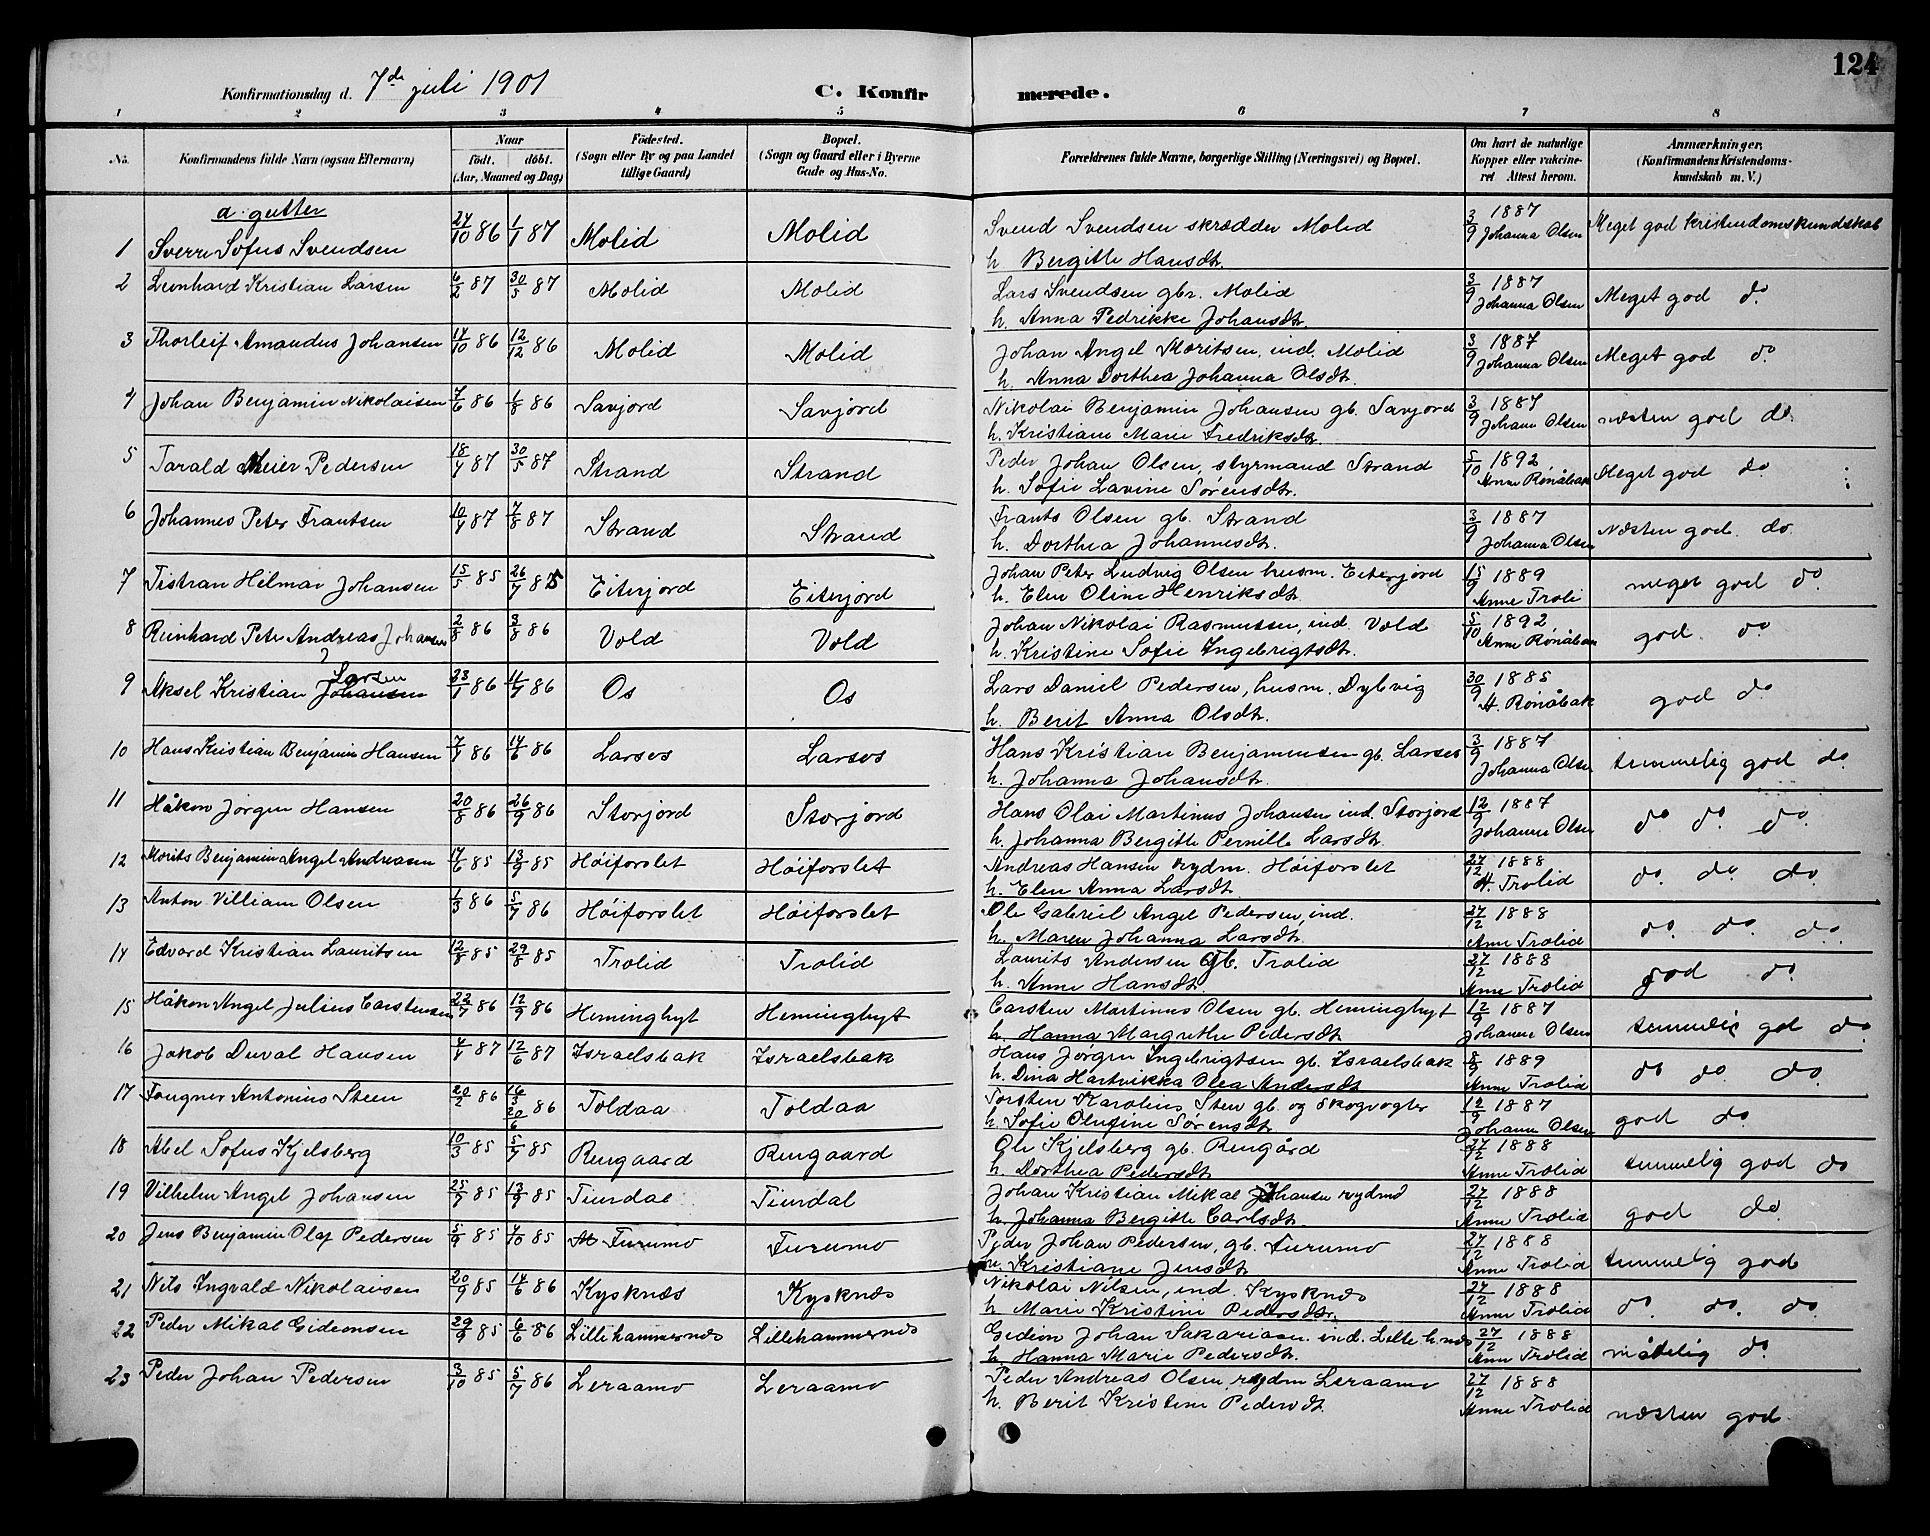 124
Konfirmationsdag d. 7de juli 1901
C. Konfirmerede.
1 2 3 4 5 6 7 8
No. Konfirmandens fulde Navn (ogsaa Efternavn) Naar født. døbt. (Aar, Maaned og Dag) Fødested. (Sogn eller By og paa Landet tillige Gaard) Bopæl. (Sogn og Gaard eller i Byerne Gade og Hus-No. Forældrenes fulde Navne, borgerlige Stilling (Næringsvei) og Bopæl. Om havt de naturlige Kopper eller vakcineret Attest herom. Anmærkninger, (Konfirmandens Kristendomskundskab m. V.)
a. gutter
1 Sverre Sofus Svendsen 24/10 86 1/1 87 Molid Molid Svend Svendsen skrædder Molid 3/9 1887 Meget god kristendomskundskab
h. Bergitte Hansdt. Johanna Olsen
2 Leonhard Kristian Larsen 6/2 87 30/5 87 Molid Molid Lars Svendsen gbr. Molid 3/9 1887 Meget god do.
h. Anna Pedrikke Johansdt. Johanna Olsen
3 Thorleif Amandus Johansen 14/10 86 12/12 86 Molid Molid Johan Angel Moritsen, ind. Molid 3/9 1887 Meget god do
h. Anna Dorthea Johanna Olsdt. Johanna Olsen
4 Johan Benjamin Nikolaisen 7/6 86 1/8 86 Savjord Savjord Nikolai Benjamin Johansen gb. Savjord 3/9 1887 næsten god do
h. Kristiane Marie Fredriksdt. Johann Olsen
5 Tarald Meier Pedersen 18/4 87 30/5 87 Strand Strand Peder Johan Olsen, styrmand Strand 5/10 1892 Meget god do
h. Sofie Lavine Sørensdt. Anne Rønåbak
6 Johannes Peter Frantsen 10/4 87 7/8 87 Strand Strand Frants Olsen gb. Strand 3/9 1887 Næsten god. do.
h. Dorthea Johannesdt. Johanna Olsen
7 Tistran Hilmar Johansen 15/5 85 26/7 85 Eiterjord Eiterjord Johan Peter Ludvig Olsen husm. Eiterjord 15/9 1889 meget god do
h. Elen Oline Henriksdt. Anne Troli
8 Reinhard Peter Andreas Johansen 2/8 86 3/8 86 Vold Vold Johan Nikolai Rasmussen, ind. Vold 5/10 1892 god. do
h. Kristine Sofie Ingebrigtsdt. Anne Rønåbak
9 Aksel Kristian Johansen Larsen 23/1 86 11/7 86 Os Os Lars Daniel Pedersen, husm. Dybvig 30/9 1885 god do
h. Berit Anna Olsdt. A. Rønåbak
10 Hans Kristian Benjamin Hansen 7/4 86 14/6 86 Larsos Larsos Hans Kristian Benjaminsen gb. Larsos 3/9 1887 temmelig god do.
h. Johanna Johansdt. Johanna Olsen
11 Håkon Jørgen Hansen 20/8 86 26/9 86 Storjord Storjord Hans Olai Martinus Johansen ind. Storjord 12/9 1887 do do. do.
h. Johanna Bergitte Pernille Larsdt. Johanne Olsen
12 Morits Benjamin Angel Andreasen 17/6 85 13/9 85 Høiforslet Høiforslet Andreas Hansen rydm. Høiforslet 27/12 1888 do. do. do.
h. Elen Anna Larsdt. A. Trolid
13 Anton Villiam Olsen 1/3 86 5/7 86 Høiforslet Høiforslet Ole Gabriel Angel Pedersen, ind. 27/12 1888 do. do. do.
h. Maren Johanna Larsdt. Anne Trolid
14 Edvard Kristian Lauritsen 12/8 85 29/8 85 Trolid Trolid Laurits Andersen Gb. Trolid 27/12 1888 god do
h. Anne Hansdt. Anne Trolid
15 Håkon Angel Julius Carstensen 22/7 86 12/9 86 Heminghyt Heminghyt Carsten Martinus Olsen gb. Heminghyt 12/9 1887 temmelig god do
h. Hanna Margrethe Pedersdt. Johanne Olsen
16 Jakob Duval Hansen 4/4 87 12/6 87 Israelsbak Israelsbak Hans Jørgen Ingebrigtsen gb. Israelsbak 8/9 1889 do do. do.
h. Dina Hartvikka Olea Andersdt Anne Trolid
17 Fougner Antonius Steen 20/2 86 16/5 20/6 86 Toldaa Toldaa Torsten Karolius Sten gb. og skogvogter 12/9 1887 god do.
h. Sofie Olufine Sørensdt. Johanne Olsen
18 Abel Sofus Kjelsberg 10/3 85 5/7 85 Rengaard Rengaard Ole Kjelsberg gb. Rengård 27/12 1888 temmelig god do
h. Dorthea Pedersdt. Anne Trolid
19 Vilhelm Angel Johansen 25/7 85 13/9 85 Tiurdal Tiurdal Johan Kristian Mikal Johansen rydmd 27/12 1888 god do.
h. Johanna Bergitte Carlsdt. Anne Trolid
20 Jens Benjamin Olaf Pedersen 5/9 85 4/10 85 Furumo Furumo Peder Johan Pedersen, gb. Furumo 27/12 1888 temmelig god
h. Kristiane Jensdt. Anne Trolid
21 Nils Ingvald Nikolaisen 20/9 85 14/6 86 Kysknæs Kysknæs Nikolai Nilsen, ind. Kysknæs 27/12 1888 do. do. do.
h. Marie Kristine Pedersdt. Anne Trolid
22 Peder Mikal Gideonsen 29/9 85 6/6 86 Lillehammernæs Lillehammernæs Gideon Johan Sakariasen. ind. Lille h.næs 27/12 1888 måtelig do.
h. Hanna Marie Pedersdt. Anne Trolid
23 Peder Johan Pedersen 3/10 85 5/7 86 Leraamo Leraamo Peder Andreas Olsen, rydm Leraamo 27/12 1888 næsten god.
h. Berit Kristine Pedersdt. Anne Trolid